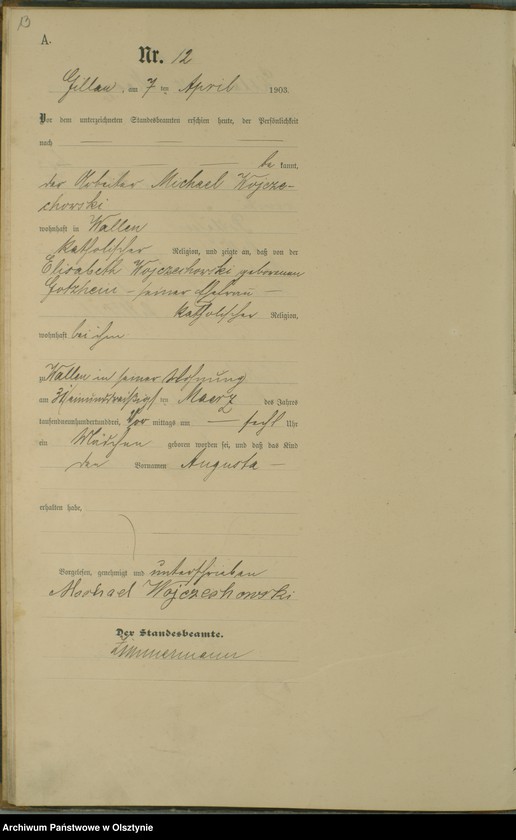 13
A.
Nr. 12
Gillau, am 7 ten April 1903.
Vor dem unterzeichneten Standesbeamten erschien heute, der Persönlichkeit
nach
be kannt,
der Arbeiter Michael Wojcze-
chowski
wohnhaft in Wallen
katholischer Religion, und zeigte an, daß von der
Elisabeth Wojczechowski geborenen
— seiner Ehefrau —
katholischer Religion,
wohnhaft bei ihm
zu Wallen in seiner Wohnung
am 31 einunddreißigsten Maerz des Jahres
tausendneunhundertunddrei, Vor mittags um — sechs Uhr
ein Mädchen geboren worden sei, und daß das Kind
den Vornamen Augusta —
erhalten habe,
Vorgelesen, genehmigt und unterschrieben
Michael Wojczechowski
Der Standesbeamte.
Zimmermann
Archiwum Państwowe w Olsztynie